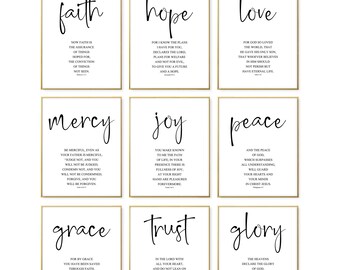 faith
NOW FAITH IS
THE ASSURANCE
OF THINGS
HOPED FOR,
THE CONVICTION
OF THINGS
NOT SEEN.
hope
FOR I KNOW THE PLANS
I HAVE FOR YOU,
DECLARES THE LORD,
PLANS FOR WELFARE
AND NOT FOR EVIL,
TO GIVE YOU A FUTURE
AND A HOPE.
love
FOR GOD SO LOVED
THE WORLD, THAT
HE GAVE HIS ONLY SON,
THAT WHOEVER BELIEVES
IN HIM SHOULD
NOT PERISH BUT
HAVE ETERNAL LIFE.
mercy
BE MERCIFUL, EVEN AS
YOUR FATHER IS MERCIFUL.
JUDGE NOT, AND YOU
WILL NOT BE JUDGED;
CONDEMN NOT, AND YOU
WILL NOT BE CONDEMNED;
FORGIVE, AND YOU
WILL BE FORGIVEN.
joy
YOU MAKE KNOWN
TO ME THE PATH
OF LIFE; IN YOUR
PRESENCE THERE IS
FULLNESS OF JOY;
AT YOUR RIGHT
HAND ARE PLEASURES
FOREVERMORE.
peace
AND THE PEACE
OF GOD,
WHICH SURPASSES
ALL UNDERSTANDING,
WILL GUARD
YOUR HEARTS AND
YOUR MINDS
IN CHRIST JESUS.
grace
FOR BY GRACE
YOU HAVE BEEN SAVED
THROUGH FAITH.
trust
IN THE LORD WITH
ALL YOUR HEART,
AND DO NOT LEAN ON
glory
THE HEAVENS
DECLARE THE GLORY
OF GOD,